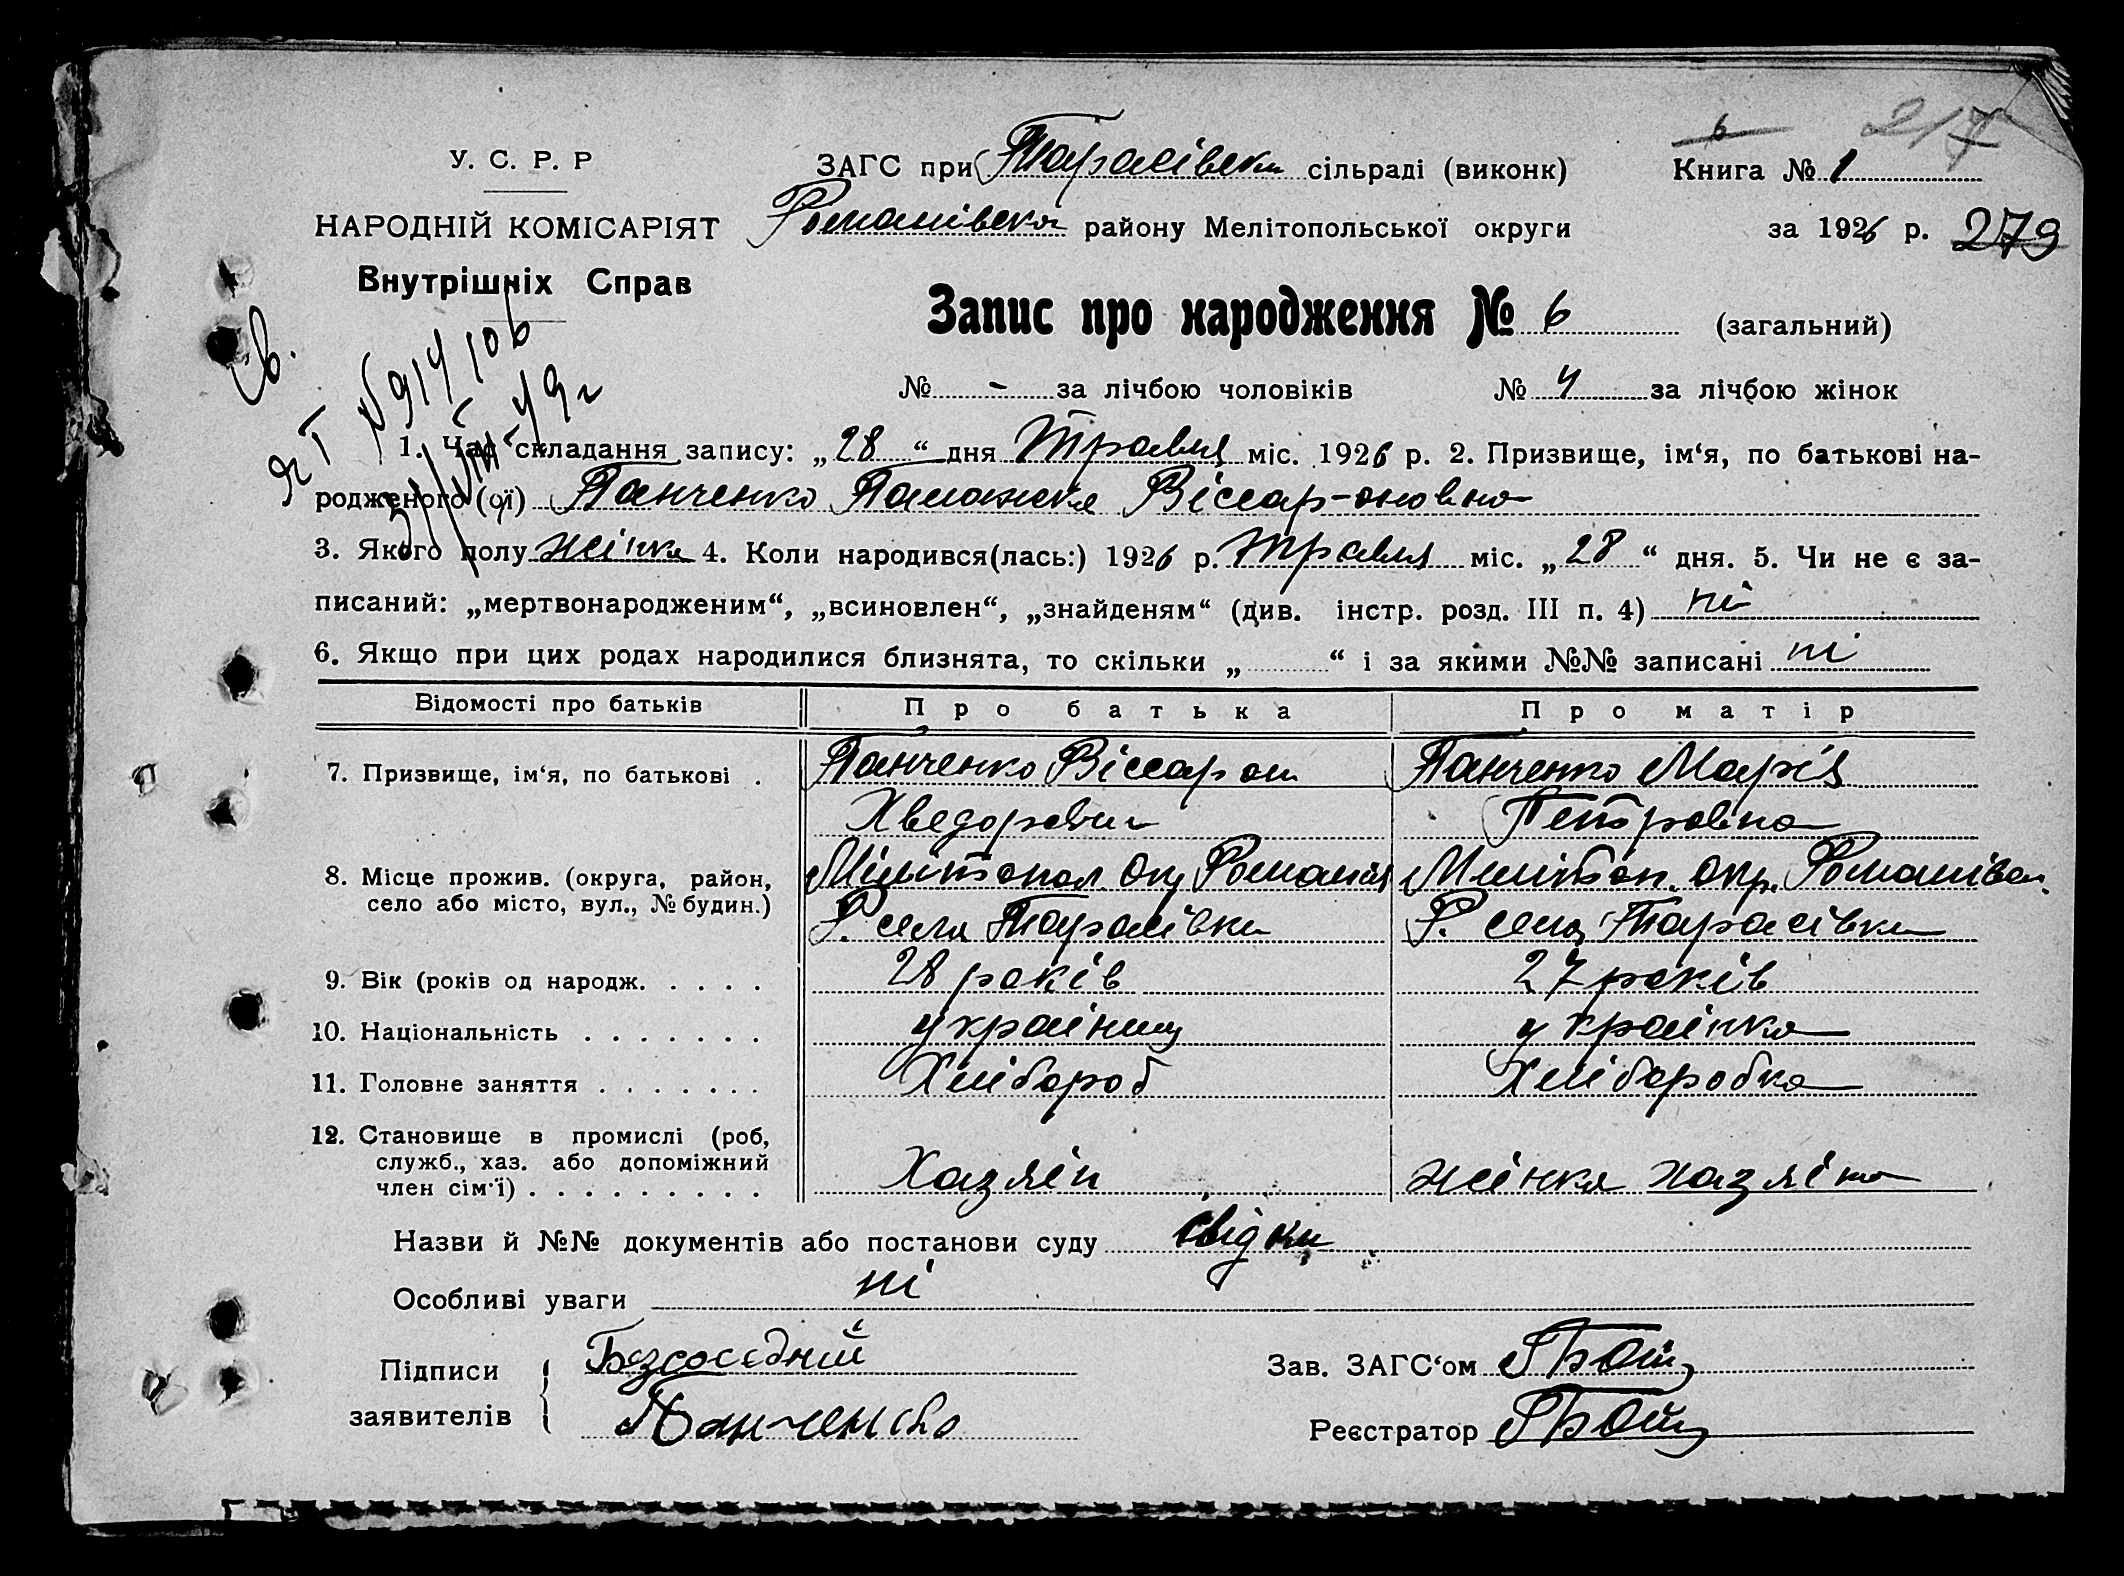 6 217
У. С. Р. Р ЗАГС при Тарасівськи сільраді (виконк) Книга № 1
НАРОДНІЙ КОМІСАРІЯТ Романівська району Мелітопольської округи за 1926 р. 279
Внутрішніх Справ
Запис про народження № 6 (загальний)
Св.
яг № 914106
№ - за лічбою чоловіків № 4 за лічбою жінок
1. Час складання запису: „28“ дня Травня міс. 1926 р. 2. Призвище, ім‘я, по батькові на-
родженого (ої) Панченко Віссар-оновна
3. Якого полу жінка 4. Коли народився(лась:) 1926 р. Травня міс. „28“ дня. 5. Чи не є за-
писаний: „мертвонародженим“, „всиновлен“, „знайденям“ (див. інстр. розд. III п. 4) ні
6. Якщо при цих родах народилися близнята, то скільки „ “ і за якими №№ записані ні
Відомості про батьків Про батька Про матір
7. Призвище, ім‘я, по батькові . Панченко Віссарон Панченко Марія
Хведорович Петровна
8. Місце прожив. (округа, район, Мілітопол. Окр Романів Мелітоп. Окр. Романівськ.
село або місто, вул., № будин.) Р. села Тарасівки Р. села Тарасівки
9. Вік (років од народж. . . . . 28 років 27 років
10. Національність . . . . . . . українец українка
11. Головне заняття . . . . . . . Хлібороб Хліборобка
12. Становище в промислі (роб,
служб., хаз. або допоміжний Хазяїн жінка хазяїна
член сім‘ї) . . . . . . . . .
Назви й №№ документів або постанови суду свідки
Особливі уваги ні
Підписи Безсоєдний Зав. ЗАГС‘ом
заявителів Панченко Реєстратор